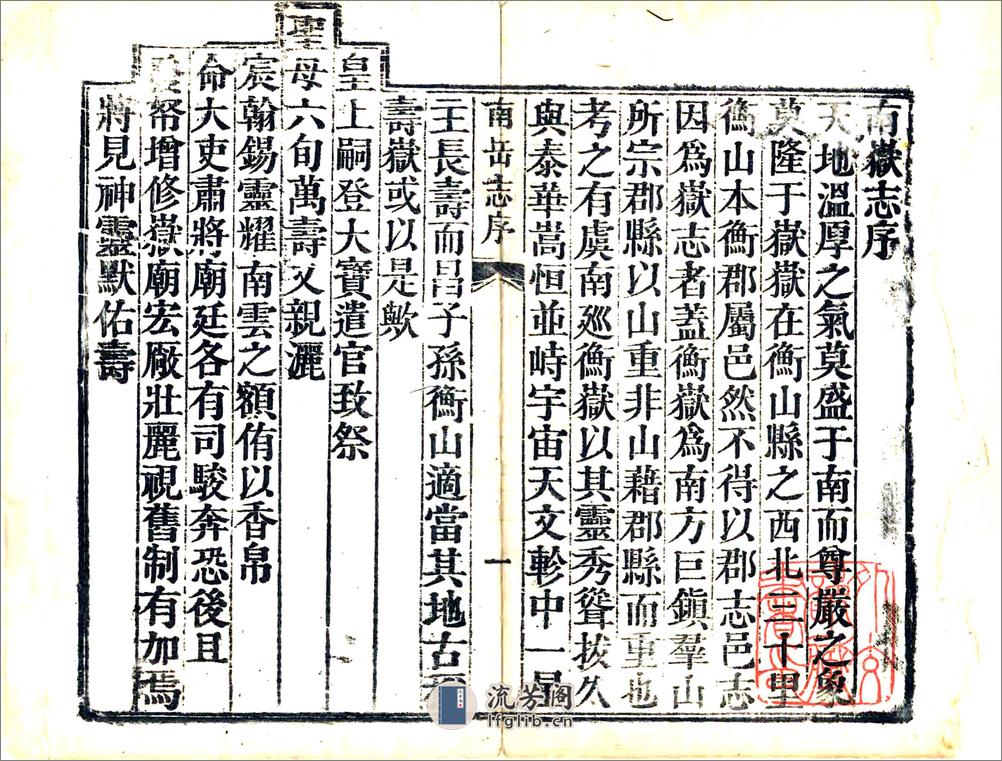 南嶽志序
天地溫厚之氣莫盛于南而尊嚴之象
莫隆于嶽嶽在衡山縣之西北三十里
衡山本衡郡屬邑然不得以郡志邑志
因爲嶽志者蓋衡嶽爲南方巨鎮羣山
所宗郡縣以山重非山藉郡縣而重也
考之有虞南廵衡嶽以其靈秀聳拔久
與泰華嵩恒並峙宇宙天文軫中一星
南岳志序
一
主長壽而昌子孫衡山適當其地古稱
壽嶽或以是歟
皇上嗣登大寶遣官致祭
聖母六旬萬壽又親灑
宸翰錫靈耀南雲之額侑以香帛
命大吏肅將廟廷各有司駿奔恐後且
帑增修嶽廟宏厰壯麗視舊制有加焉
將見神靈默佑壽
流芳阁
lfglib.cn